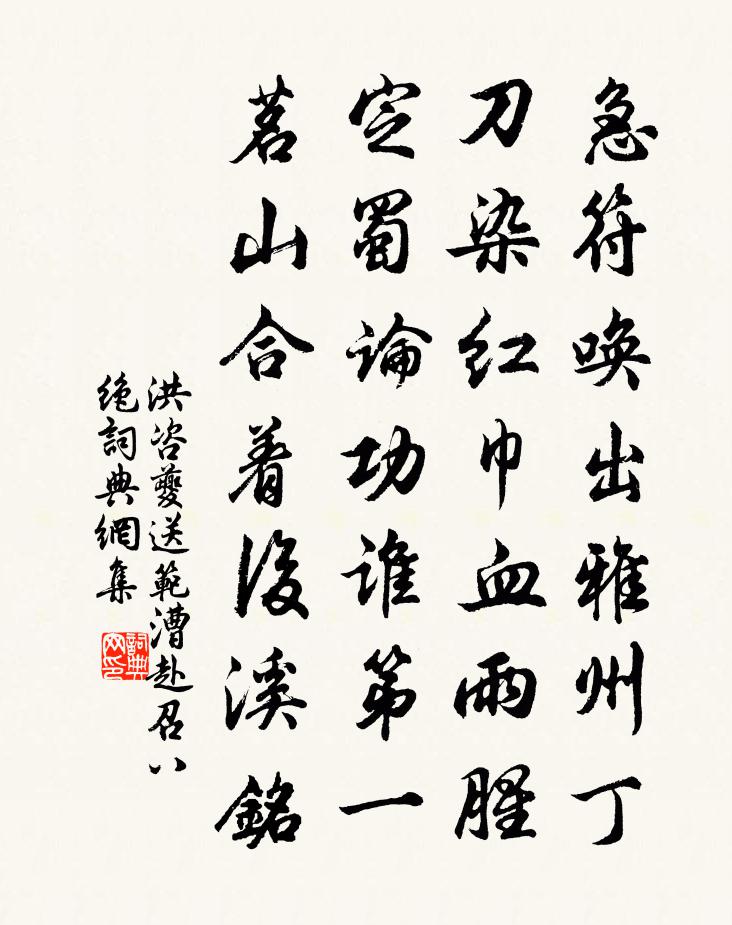 急符喚出雅州丁
刀染紅巾血雨腥
定蜀論功誰第一
茗山合着後溪銘
洪咨夔送範漕赴召八
絕詞典網集
詞典網印